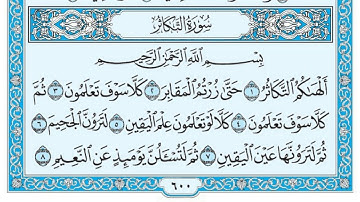 سُورَةُ التَّكَاثُرِ
بِسْمِ اللَّهِ الرَّحْمَٰنِ الرَّحِيمِ
أَلْهَىٰكُمُ التَّكَاثُرُ ١ حَتَّىٰ زُرْتُمُ الْمَقَابِرَ ٢ كَلَّا سَوْفَ تَعْلَمُونَ ٣ ثُمَّ
كَلَّا سَوْفَ تَعْلَمُونَ ٤ كَلَّا لَوْ تَعْلَمُونَ عِلْمَ الْيَقِينِ ٥ لَتَرَوُنَّ الْجَحِيمَ ٦
ثُمَّ لَتَرَوُنَّهَا عَيْنَ الْيَقِينِ ٧ ثُمَّ لَتُسْـَٔلُنَّ يَوْمَئِذٍ عَنِ النَّعِيمِ ٨
٦٠٠